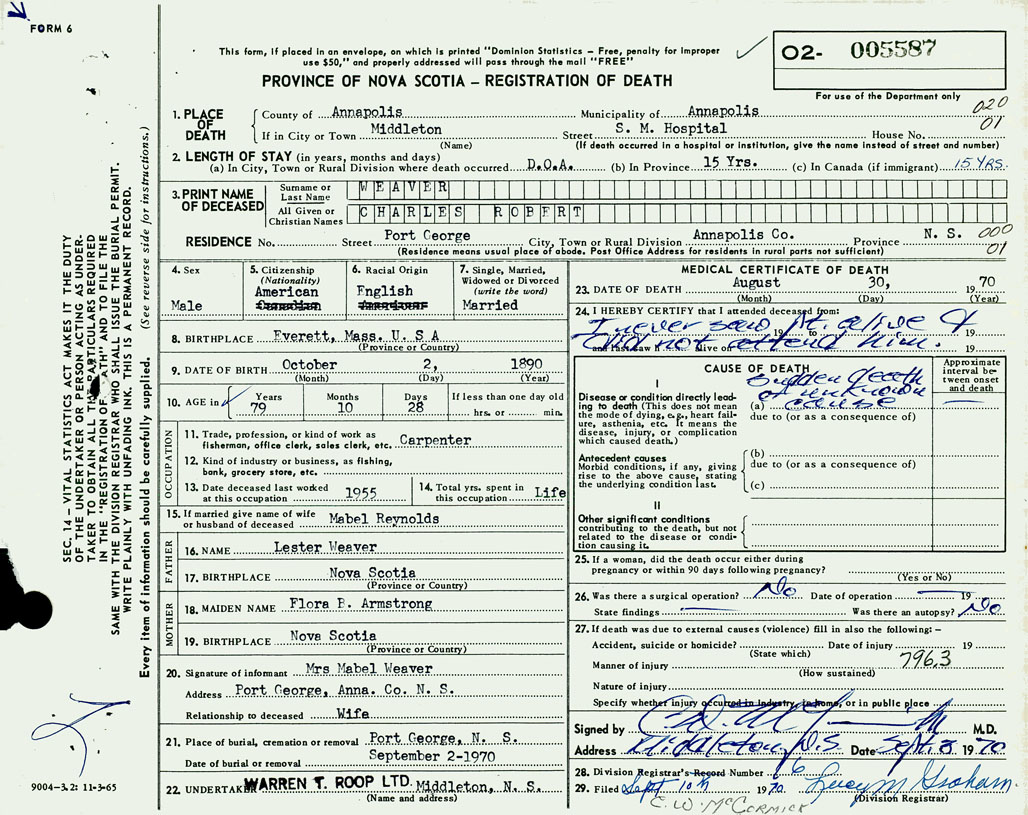 FORM 6
This form, if placed in an envelope, on which is printed "Dominion Statistics – Free, penalty for improper
use $50," and properly addressed will pass through the mail "FREE"
O2- 005587
PROVINCE OF NOVA SCOTIA – REGISTRATION OF DEATH
For use of the Department only
020
01
1. PLACE OF DEATH
County of Annapolis Municipality of Annapolis
If in City or Town Middleton Street S. M. Hospital House No.
(Name) (If death occurred in a hospital or institution, give the name instead of street and number)
2. LENGTH OF STAY (in years, months and days)
(a) In City, Town or Rural Division where death occurred D.O.A. (b) In Province 15 Yrs. (c) In Canada (if immigrant) 15 YRS.
3. PRINT NAME OF DECEASED
Surname or Last Name WEAVER
All Given or Christian Names CHARLES ROBERT
RESIDENCE No. Street Port George City, Town or Rural Division Annapolis Co. Province N. S. 000
01
(Residence means usual place of abode. Post Office Address for residents in rural parts not sufficient)
4. Sex
Male
5. Citizenship
(Nationality)
American
Canadian
6. Racial Origin
English
American
7. Single, Married,
Widowed or Divorced
(write the word)
Married
8. BIRTHPLACE Everett, Mass. U. S A
(Province or Country)
9. DATE OF BIRTH October 2, 1890
(Month) (Day) (Year)
10. AGE in Years Months Days If less than one day old
79 10 28 hrs. or min.
OCCUPATION
11. Trade, profession, or kind of work as
fisherman, office clerk, sales clerk, etc. Carpenter
12. Kind of industry or business, as fishing,
bank, grocery store, etc.
13. Date deceased last worked
at this occupation 1955
14. Total yrs. spent in
this occupation Life
15. If married give name of wife
or husband of deceased Mabel Reynolds
FATHER
16. NAME Lester Weaver
17. BIRTHPLACE Nova Scotia
(Province or Country)
MOTHER
18. MAIDEN NAME Flora B. Armstrong
19. BIRTHPLACE Nova Scotia
(Province or Country)
20. Signature of informant Mrs Mabel Weaver
Address Port George, Anna. Co. N. S.
Relationship to deceased Wife
21. Place of burial, cremation or removal Port George, N. S.
Date of burial or removal September 2-1970
22. UNDERTAKER WARREN T. ROOP LTD. Middleton, N. S.
(Name and address)
MEDICAL CERTIFICATE OF DEATH
23. DATE OF DEATH August 30, 1970
(Month) (Day) (Year)
24. I HEREBY CERTIFY that I attended deceased from:
I never saw Pt. alive &
19 to 19
did not attend him.
and last saw h alive on 19
CAUSE OF DEATH
Approximate
interval between
onset
and death
I
Disease or condition directly leading
to death (This does not mean
the mode of dying, e.g., heart failure,
asthenia, etc. It means the
disease, injury, or complication
which caused death.)
Sudden death
of unknown
(a) cause
due to (or as a consequence of)
Antecedent causes
Morbid conditions, if any, giving
rise to the above cause, stating
the underlying condition last.
(b)
due to (or as a consequence of)
(c)
II
Other significant conditions
contributing to the death, but not
related to the disease or condition
causing it.
25. If a woman, did the death occur either during
pregnancy or within 90 days following pregnancy?
(Yes or No)
26. Was there a surgical operation? No Date of operation 19
State findings Was there an autopsy? No
27. If death was due to external causes (violence) fill in also the following: –
Accident, suicide or homicide? Date of injury 19
(State which) 796.3
Manner of injury
(How sustained)
Nature of injury
Specify whether injury occurred in industry, in home, or in public place
Signed by M.D.
Address Middleton, N.S. Date Sept. 8 1970
28. Division Registrar's Record Number 6
29. Filed Sept 10th 1970 Lucy M Graham
(Division Registrar)
E. W. McCORMICK
SEC. 14 – VITAL STATISTICS ACT MAKES IT THE DUTY
OF THE UNDERTAKER OR PERSON ACTING AS UNDERTAKER
TO OBTAIN ALL THE PARTICULARS REQUIRED
IN THE "REGISTRATION OF DEATH" AND TO FILE THE
SAME WITH THE DIVISION REGISTRAR WHO SHALL ISSUE THE BURIAL PERMIT.
WRITE PLAINLY WITH UNFADING INK. THIS IS A PERMANENT RECORD.
Every item of information should be carefully supplied. (See reverse side for instructions.)
9004–3.2: 11-3-65